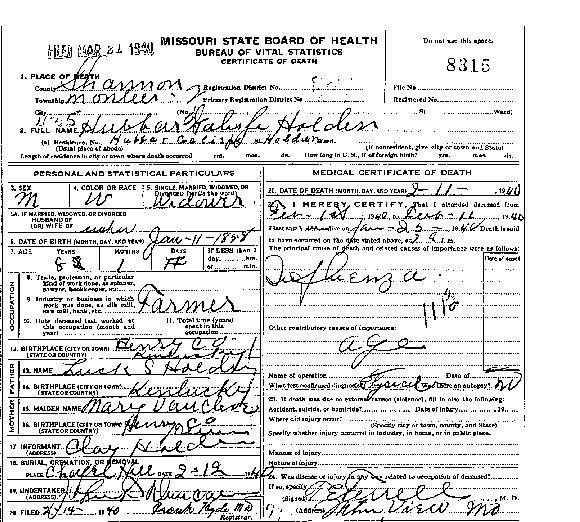 FILED MAR 21 1940
MISSOURI STATE BOARD OF HEALTH
BUREAU OF VITAL STATISTICS
CERTIFICATE OF DEATH
Do not use this space.
8315
1. PLACE OF DEATH
County Shannon
Registration District No.
File No.
Township Montier
Primary Registration District No.
Registered No.
City (No. St. Ward)
2. FULL NAME Holden
(a) Residence, No. Holden Ward.
(Usual place of abode) (If nonresident, give city or town and State)
Length of residence in city or town where death occurred yrs. mos. ds. How long in U. S., if of foreign birth? yrs. mos. ds.
PERSONAL AND STATISTICAL PARTICULARS
3. SEX M
4. COLOR OR RACE W
5. SINGLE, MARRIED, WIDOWED, OR DIVORCED (write the word) Widower
5A. IF MARRIED, WIDOWED, OR DIVORCED
HUSBAND OF
(OR) WIFE OF
6. DATE OF BIRTH (MONTH, DAY, AND YEAR) Jan-11-1858
7. AGE YEARS MONTHS DAYS IF LESS than 1
82 1
OCCUPATION
8. Trade, profession, or particular kind of work done, as spinner, sawyer, bookkeeper, etc.
9. Industry or business in which work was done, as silk mill, saw mill, bank, etc.
Farmer
10. Date deceased last worked at this occupation (month and year)
11. Total time (years) spent in this occupation
12. BIRTHPLACE (CITY OR TOWN) Henry Co
(STATE OR COUNTRY)
FATHER
13. NAME S Holden
14. BIRTHPLACE (CITY OR TOWN)
(STATE OR COUNTRY) Kentucky
MOTHER
15. MAIDEN NAME Mary
16. BIRTHPLACE (CITY OR TOWN) Henry Co
(STATE OR COUNTRY)
17. INFORMANT Clay Holden
18. BURIAL, CREMATION, OR REMOVAL
PLACE Chapel Hill DATE 2-12 1940
19. UNDERTAKER Duncan
20. FILED 2/14 1940 Frank Hyde MD
Registrar.
MEDICAL CERTIFICATE OF DEATH
21. DATE OF DEATH (MONTH, DAY, AND YEAR) 2-11- 1940
22. I HEREBY CERTIFY, That I attended deceased from
1940 to Feb-11 1940
I last saw h alive on 1940 Death is said
to have occurred on the date stated above, at m.
The principal cause of death and related causes of importance were as follows:
Date of onset
Influenza
Other contributory causes of importance:
age
Name of operation Date of
What test confirmed diagnosis? Physical Was there an autopsy? No
23. If death was due to external causes (violence), fill in also the following:
Accident, suicide, or homicide? Date of injury 19
Where did injury occur?
(Specify city or town, county, and State)
Specify whether injury occurred in industry, in home, or in public place.
Manner of injury
Nature of injury
24. Was disease or injury in any way related to occupation of deceased?
If so, specify
(Signed) M. D.
(Address) Mtn View Mo